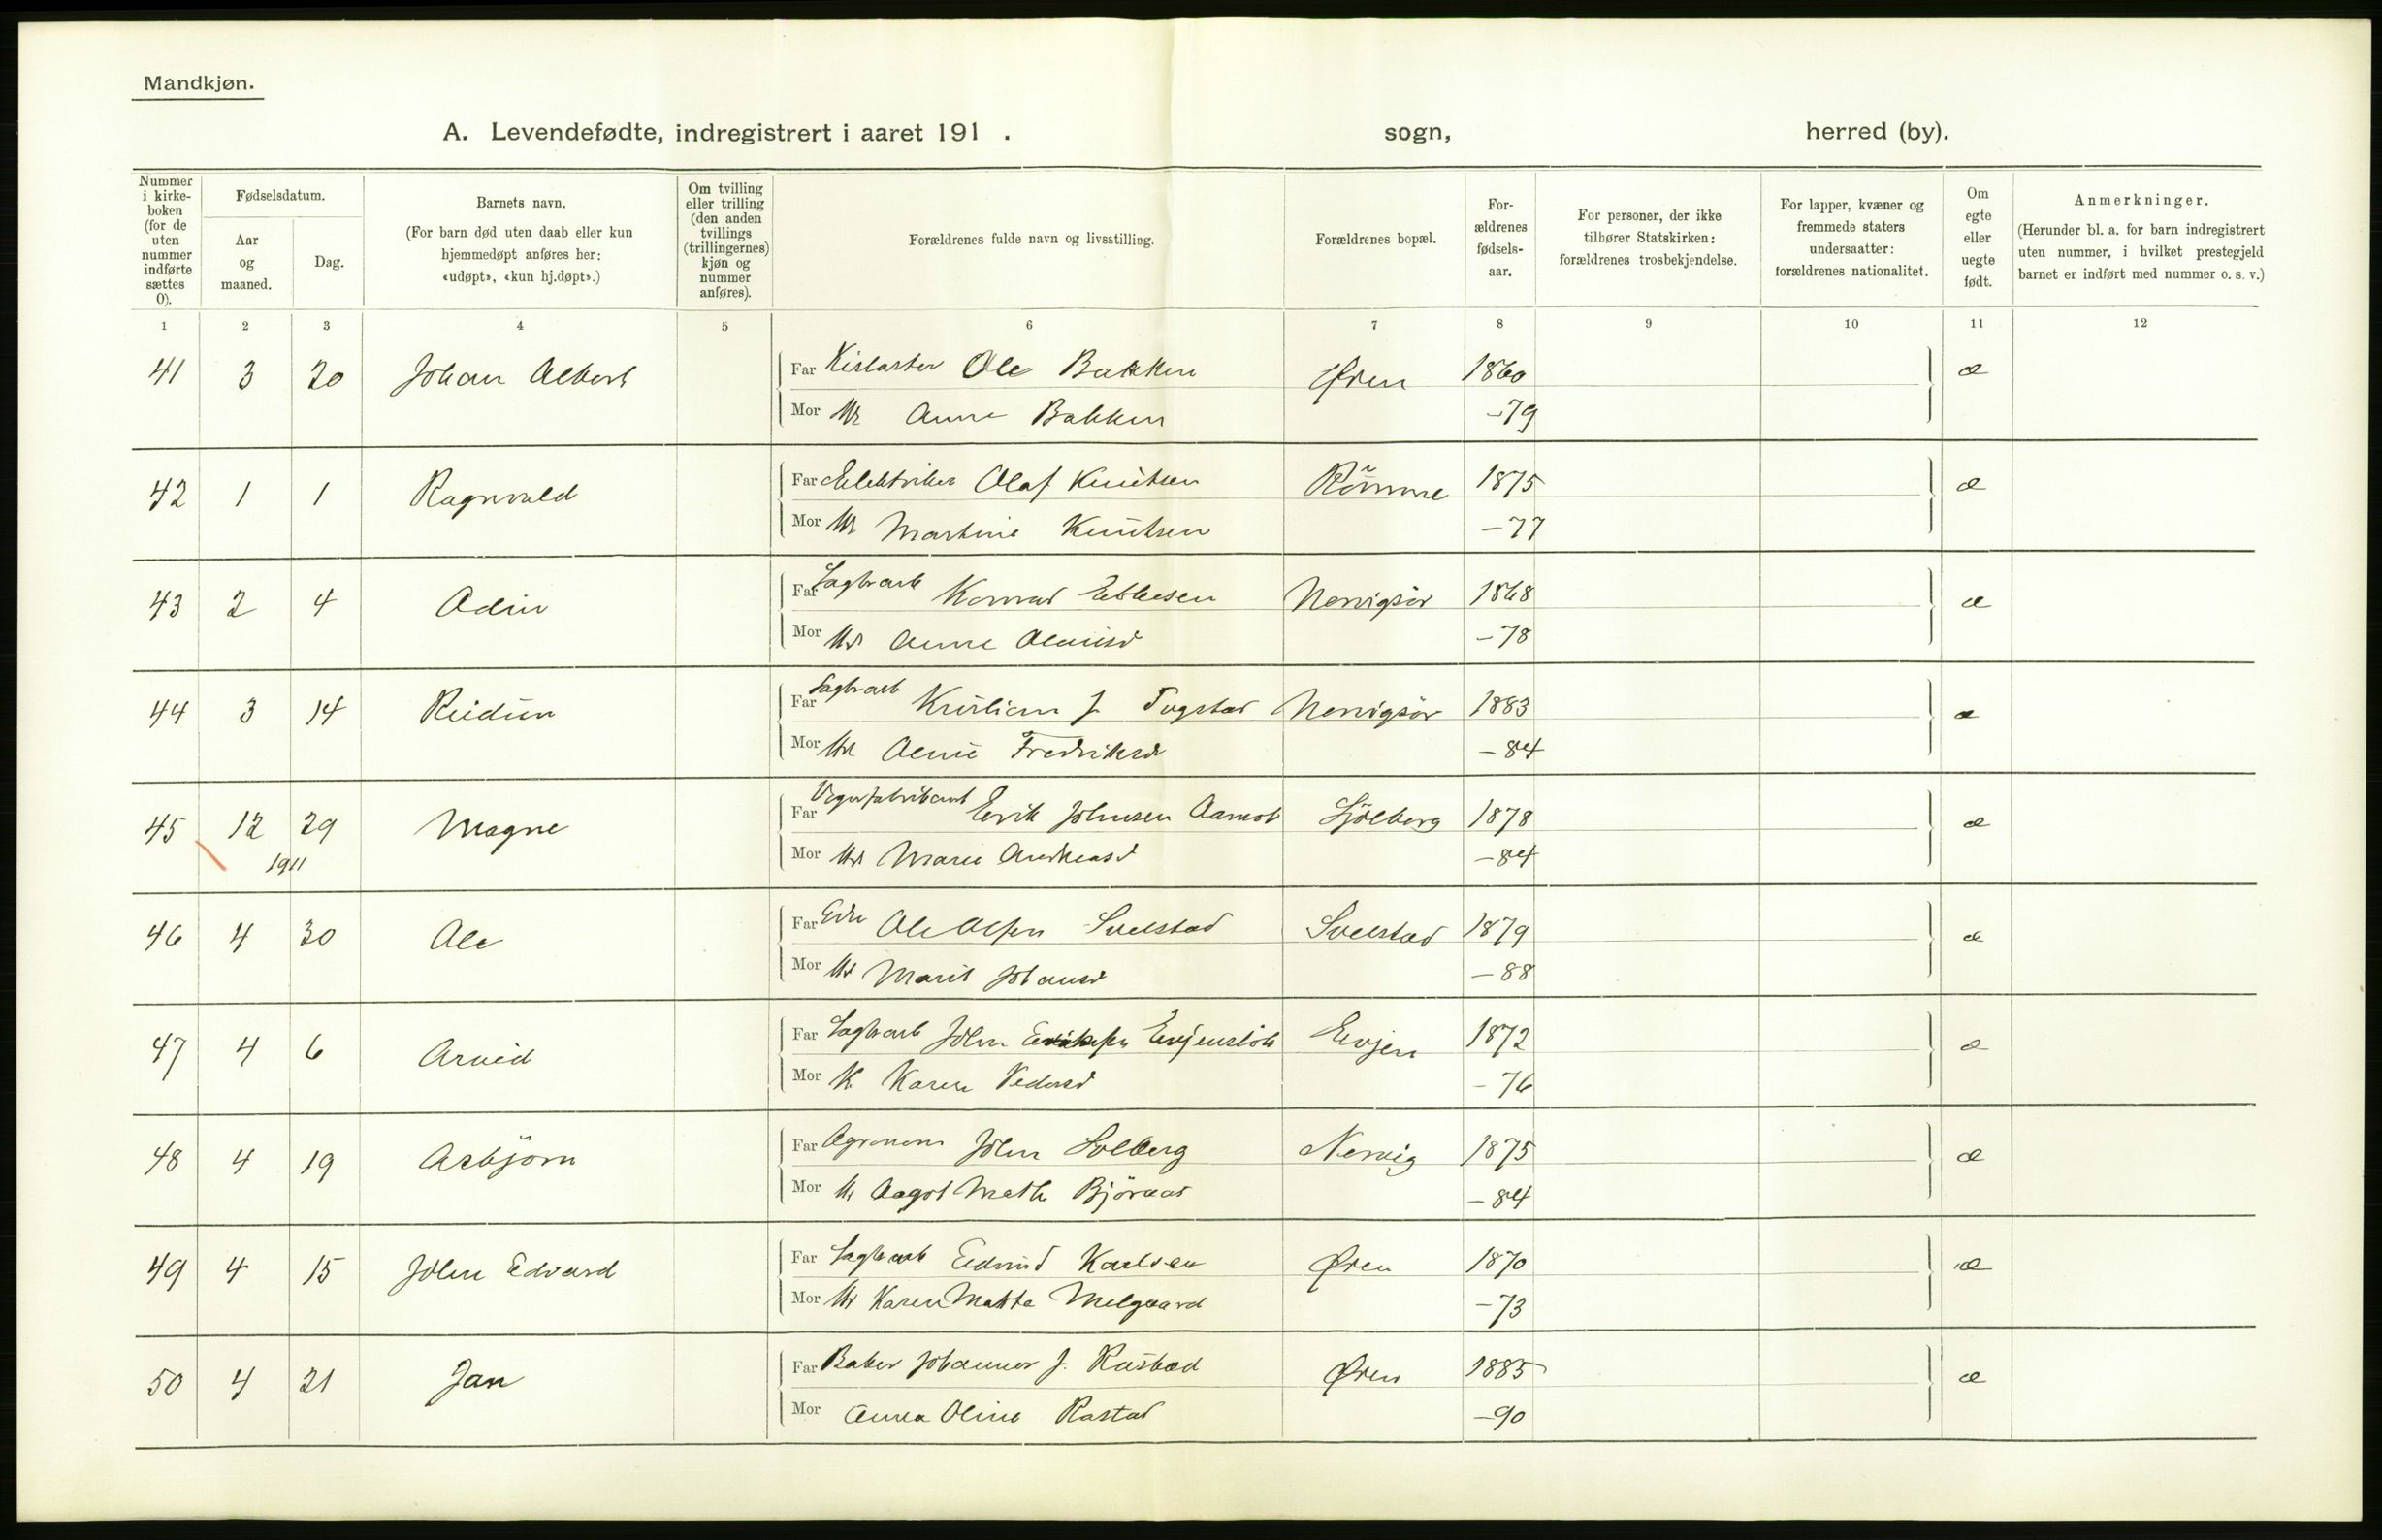 Mandkjøn.
A. Levendefødte, indregistrert i aaret 191 . sogn, herred (by).
Nummer i kirke-boken (for de uten nummer indførte sættes 0).
Fødselsdatum.
Aar og maaned.
Dag.
Barnets navn.
(For barn død uten daab eller kun hjemmedøpt anføres her: «udøpt», «kun hj.døpt».)
Om tvilling eller trilling (den anden tvillings (trillingernes) kjøn og nummer anføres).
Forældrenes fulde navn og livsstilling.
Forældrenes bopæl.
For-ældrenes fødsels-aar.
For personer, der ikke tilhører Statskirken: forældrenes trosbekjendelse.
For lapper, kvæner og fremmede staters undersaatter: forældrenes nationalitet.
Om egte eller uegte født.
Anmerkninger.
(Herunder bl. a. for barn indregistrert uten nummer, i hvilket prestegjeld barnet er indført med nummer o. s. v.)
1 2 3 4 5 6 7 8 9 10 11 12
41 3 20 Johan Albert Far Ole Bakken Øren 1860 æ
Mor Anne Bakken -79
42 1 1 Ragnvald Far Elektriker Olaf Knutsen Römme 1875 æ
Mor Martine Knutsen -77
43 2 4 Odin Far Sagbrarb Konrad Nervigsör 1868 æ
Mor Anne -78
44 3 14 Reidun Far Sagbrarb Kristian J. Tugstad Nervigsör 1883 æ
Mor Fredriksd -84
45 12 29 Magne Far Vognfabrikant Erik Johnsen Aamot Sjölberg 1878 æ
1911
Mor Marie Andreasd -84
46 4 30 Ole Far Ole Olsen Svelstad Svelstad 1879 æ
Mor Marit Johansd -88
47 4 6 Arvid Far Sagbrarb John Eriksen Evjenslök Evjen 1872 æ
Mor K Karen Pedersd -76
48 4 19 Asbjörn Far Agronom John Solberg Nervig 1875 æ
Mor Aagot Mathe Björnaas -84
49 4 15 John Edvard Far Sagbrarb Edvard Karlsen Øren 1870 æ
Mor Karen Matta Melgaard -73
50 4 21 Jan Far Baker Johannes J. Rastad Øren 1885 æ
Mor Anna Oline Rastad -90